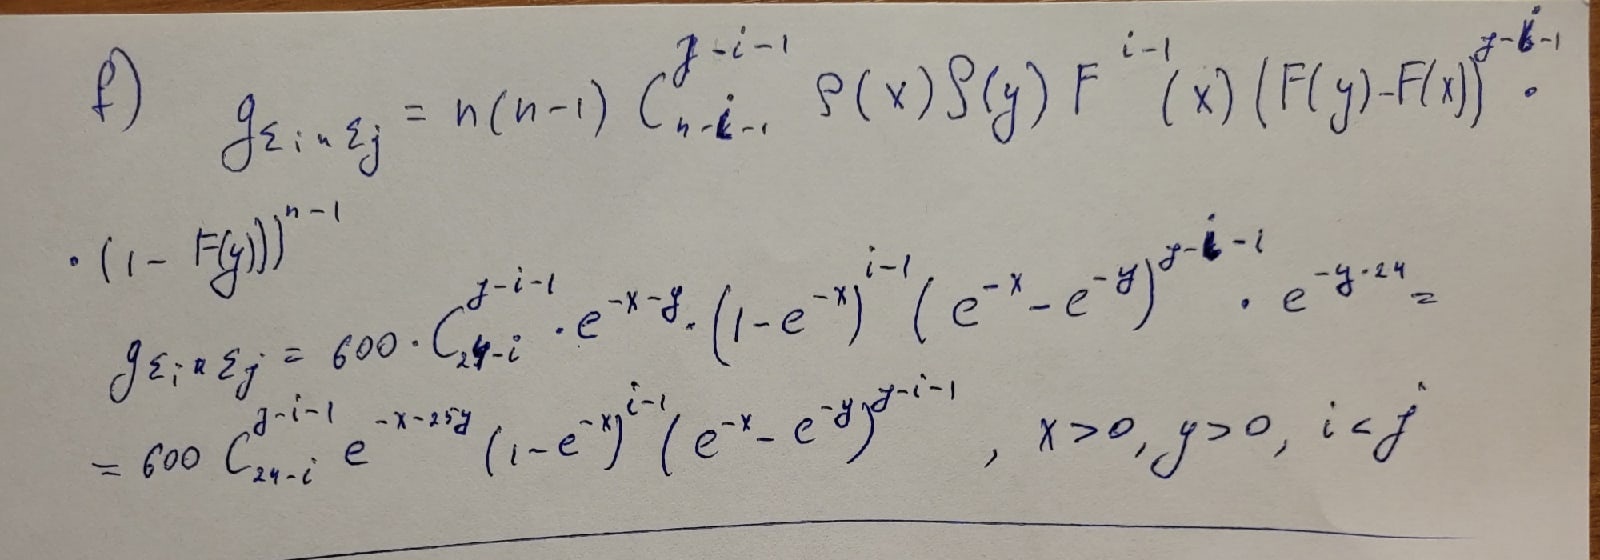 f) g_{ξ_i и ξ_j} = n(n-1) C_{n-i-1}^{j-i-1} ρ(x) ρ(y) F^{i-1}(x) (F(y)-F(x))^{j-i-1} ·
· (1 - F(y)))^{n-1}
g_{ξ_i и ξ_j} = 600 · C_{24-i}^{j-i-1} · e^{-x-y} · (1-e^{-x})^{i-1} (e^{-x} - e^{-y})^{j-i-1} · e^{-y·24} =
= 600 C_{24-i}^{j-i-1} e^{-x-25y} (1-e^{-x})^{i-1} (e^{-x} - e^{-y})^{j-i-1} , x>0, y>0, i<j